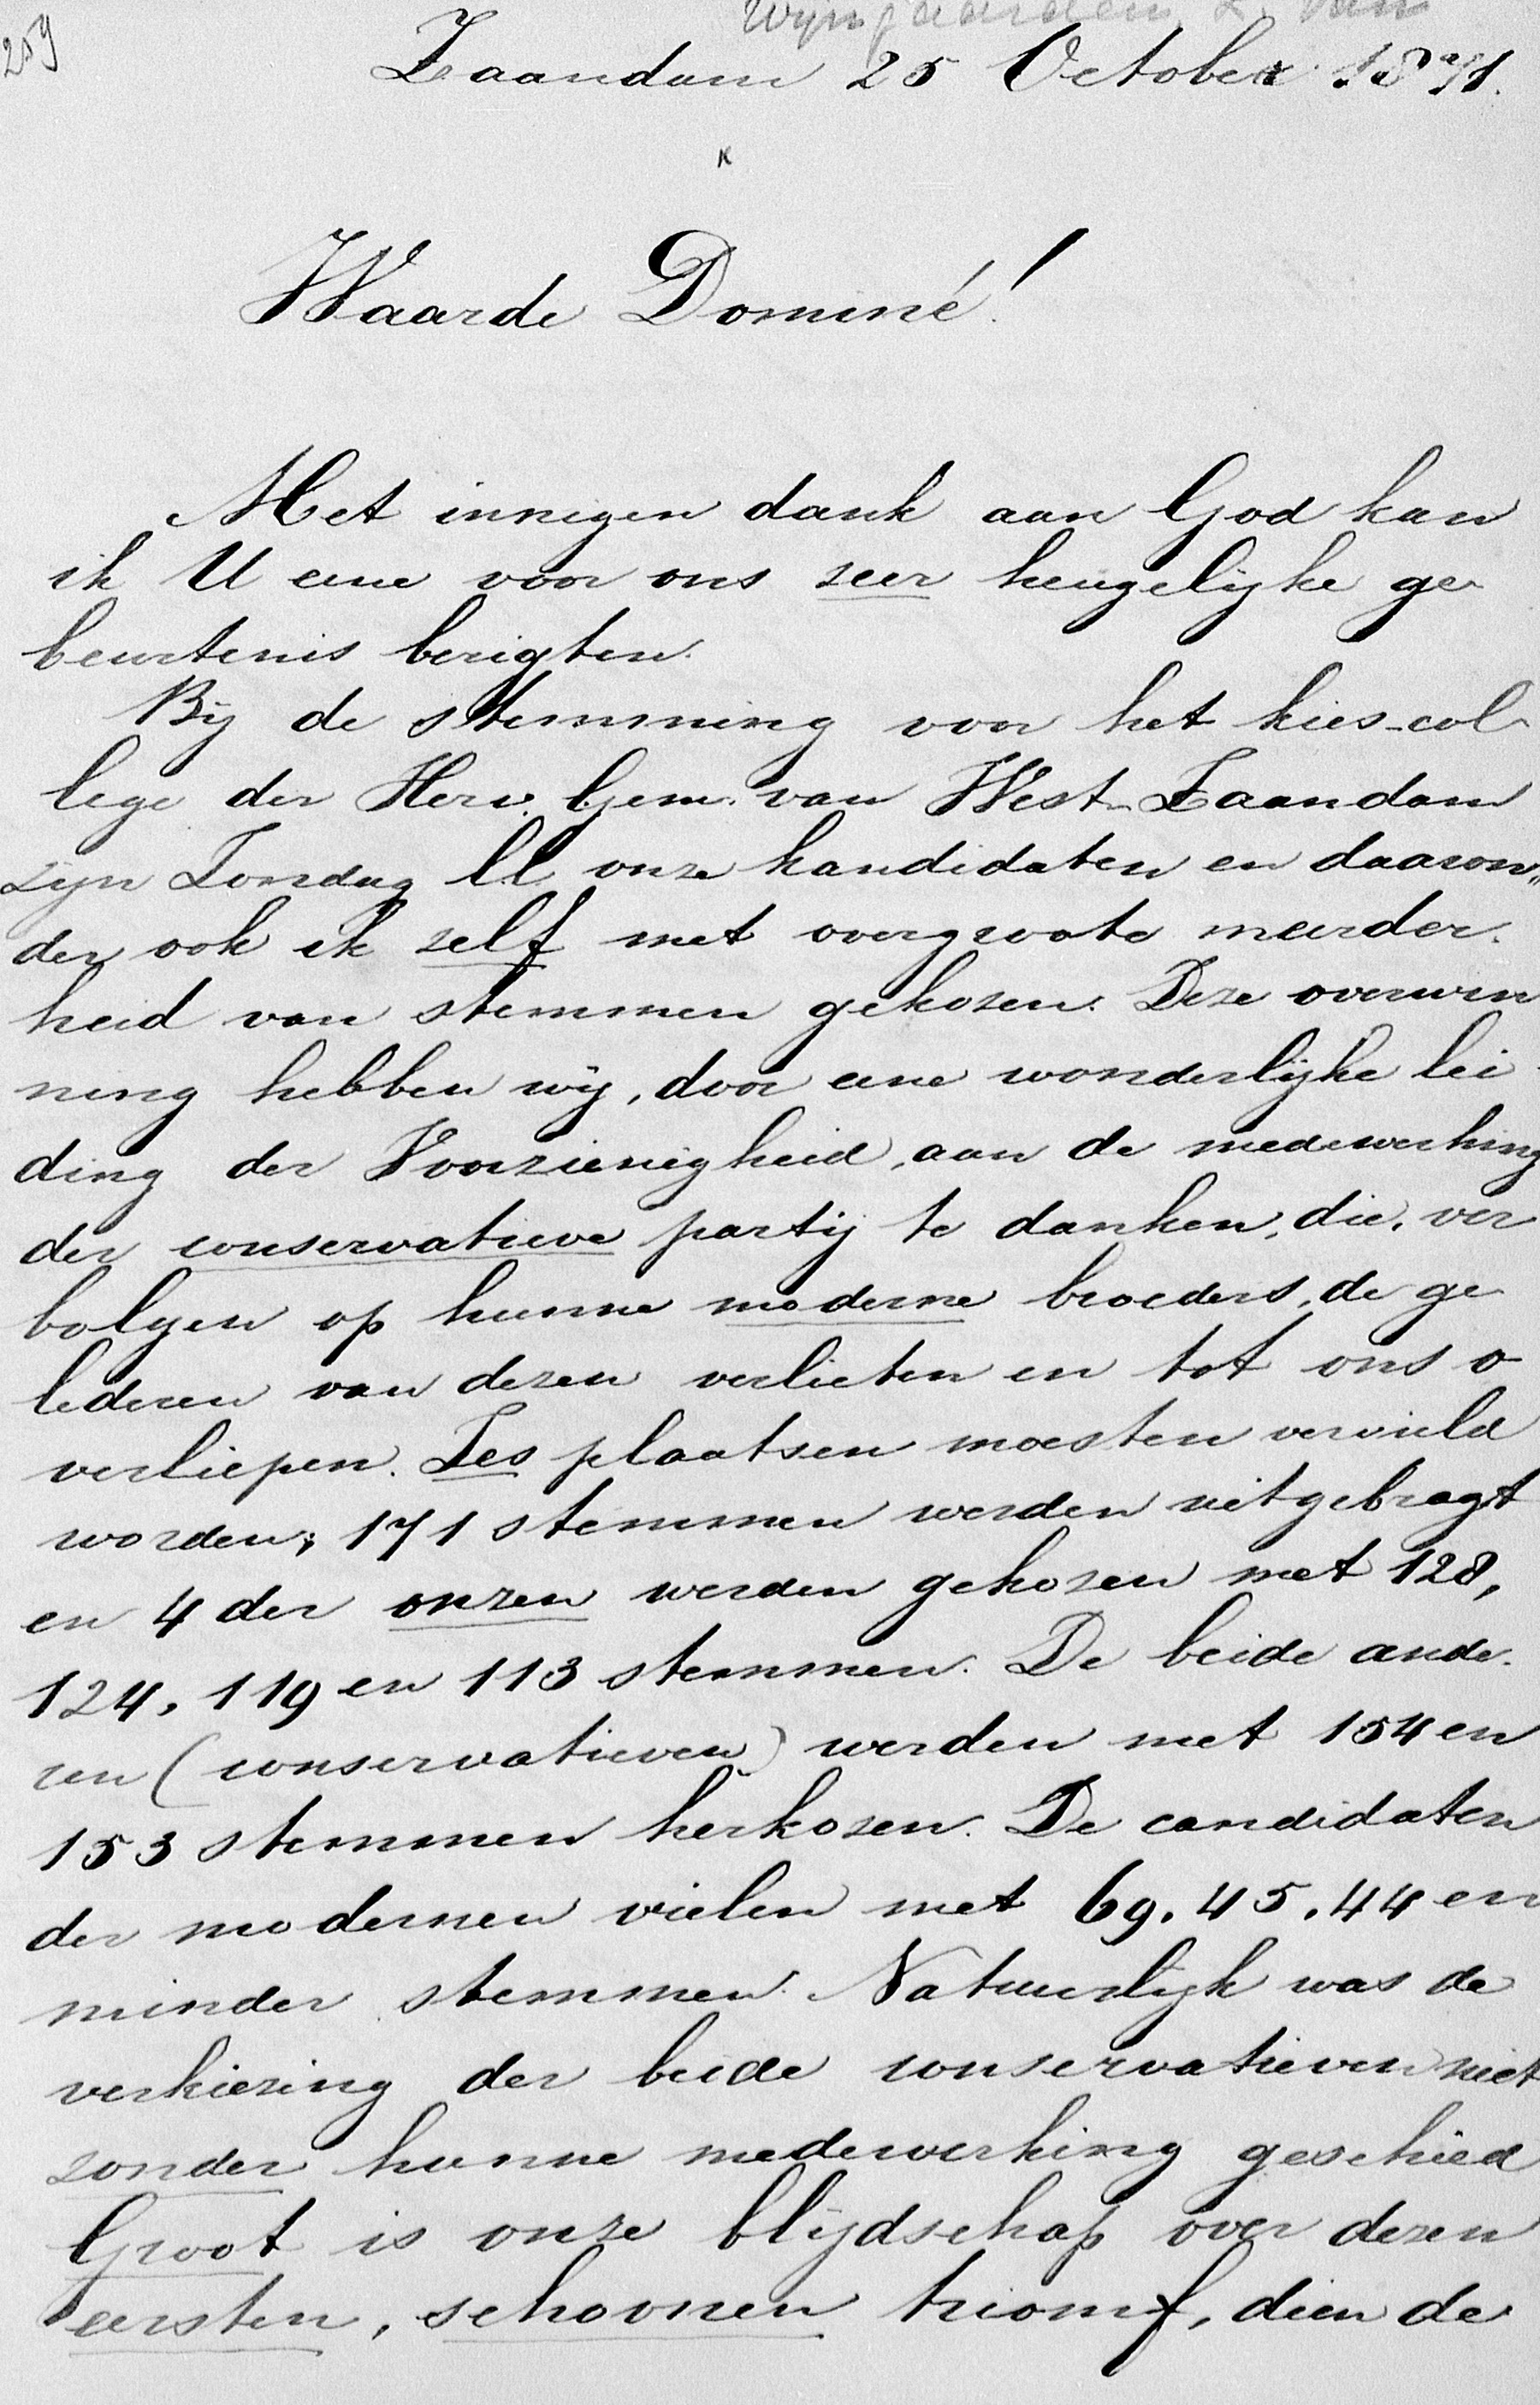 Wijngaarden, L. van
259
Zaandam 25 October 1871.
Waarde Dominé!
Met innigen dank aan God kan
ik U eene voor ons zeer heugelijke ge-
beurtenis berigten.
Bij de stemming voor het kies-col-
lege der Herv. Gem. van West-Zaandam
zijn Zondag ll. onze kandidaten en daaron„
der ook ik zelf met overgroote meerder-
heid van stemmen gekozen. Deze overwin
ning hebben wij, door eene wonderlijke lei-
ding der Voorzienigheid, aan de medewerking
der conservatieve partij te danken, die, ver
bolgen op hunne moderne broeders, de ge-
lederen van dezen verlieten en tot ons o-
verliepen. Zes plaatsen moesten vervuld
worden; 171 stemmen werden uitgebragt
en 4 der onzen werden gekozen met 128,
124, 119 en 113 stemmen. De beide ande-
ren (conservatieven) werden met 154 en
153 stemmen herkozen. De candidaten
der modernen vielen met 69. 45. 44 en
minder stemmen. Natuurlijk was de
verkiezing der beide conservatieven niet
zonder hunne medewerking geschied
Groot is onze blijdschap over dezen
eersten, schoonen triomf, dien de